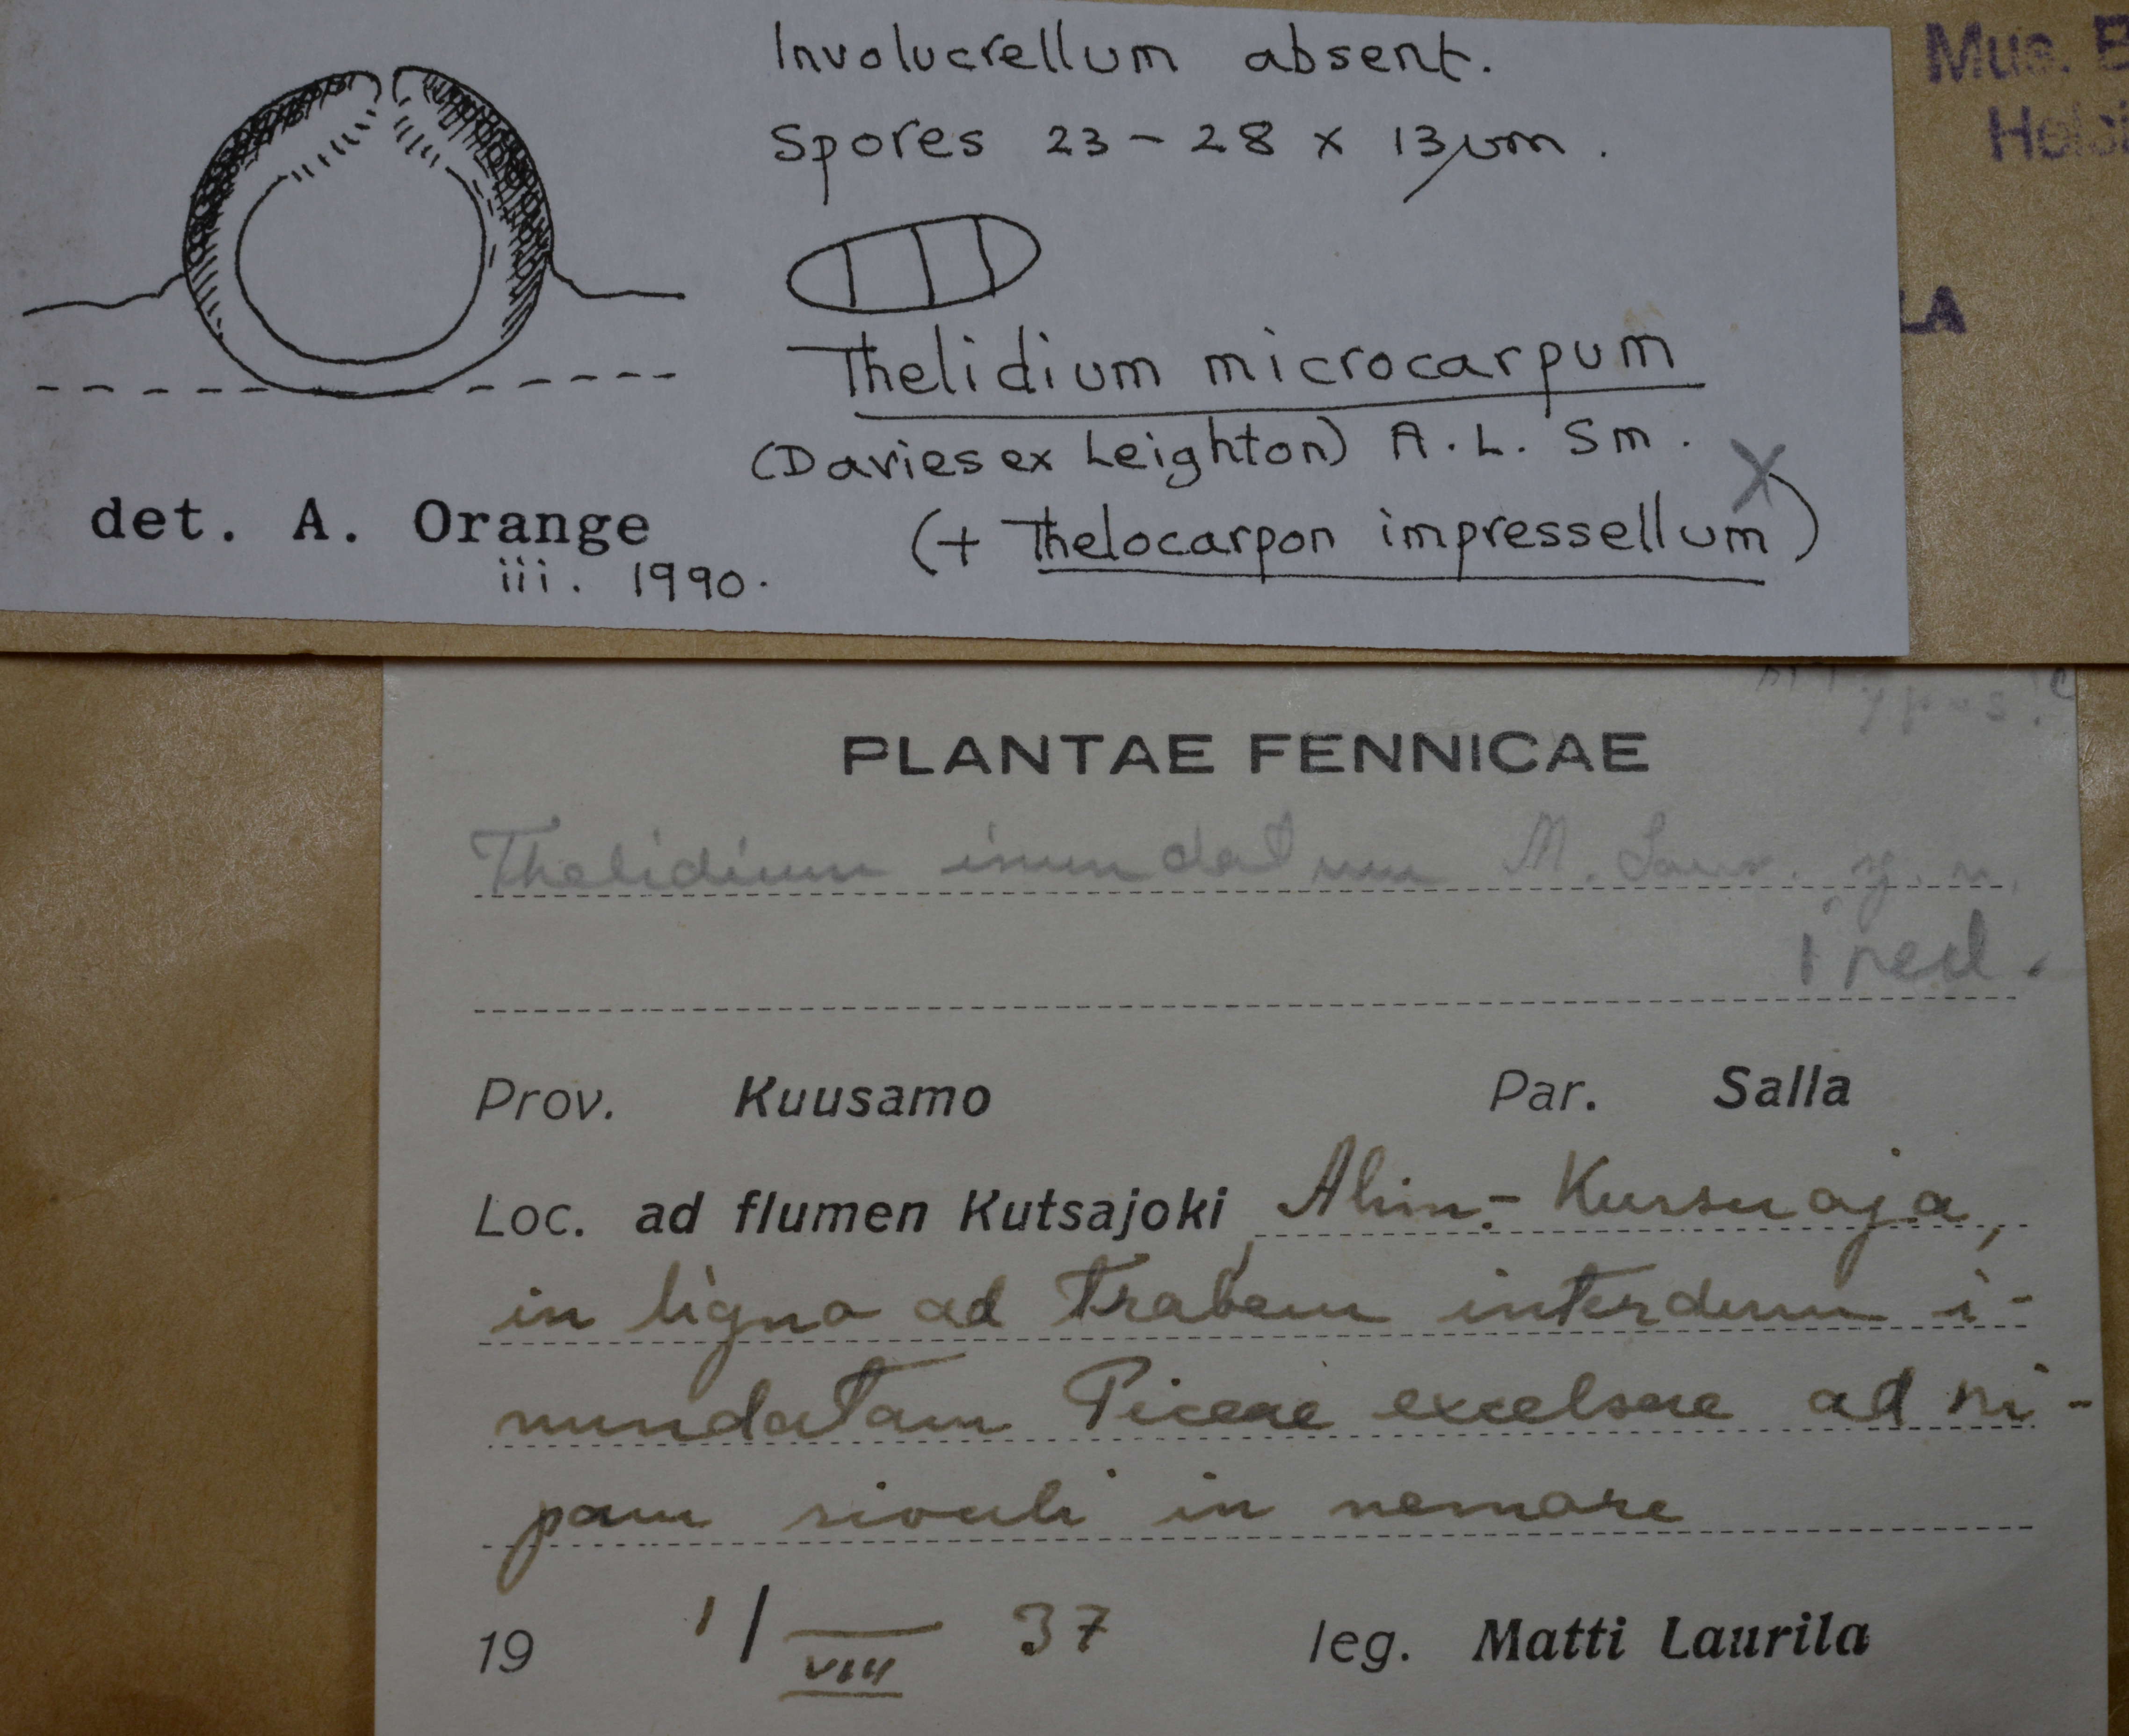 Involucrellum absent.
Spores 23 - 28 x 13 µm.
Thelidium microcarpum
(Davies ex Leighton) A. L. Sm.
x
(+ Thelocarpon impressellum)
det. A. Orange
iii. 1990.
Mus.
LA
PLANTAE FENNICAE
Thelidium inundatum M. Laur.
ined.
Prov. Kuusamo Par. Salla
Loc. ad flumen Kutsajoki, Kursuoja,
in ligno ad trabem interdum i-
nundatam Piceae excelsae ad ri-
pam rivuli in nemore
19 1/VIII 37 leg. Matti Laurila